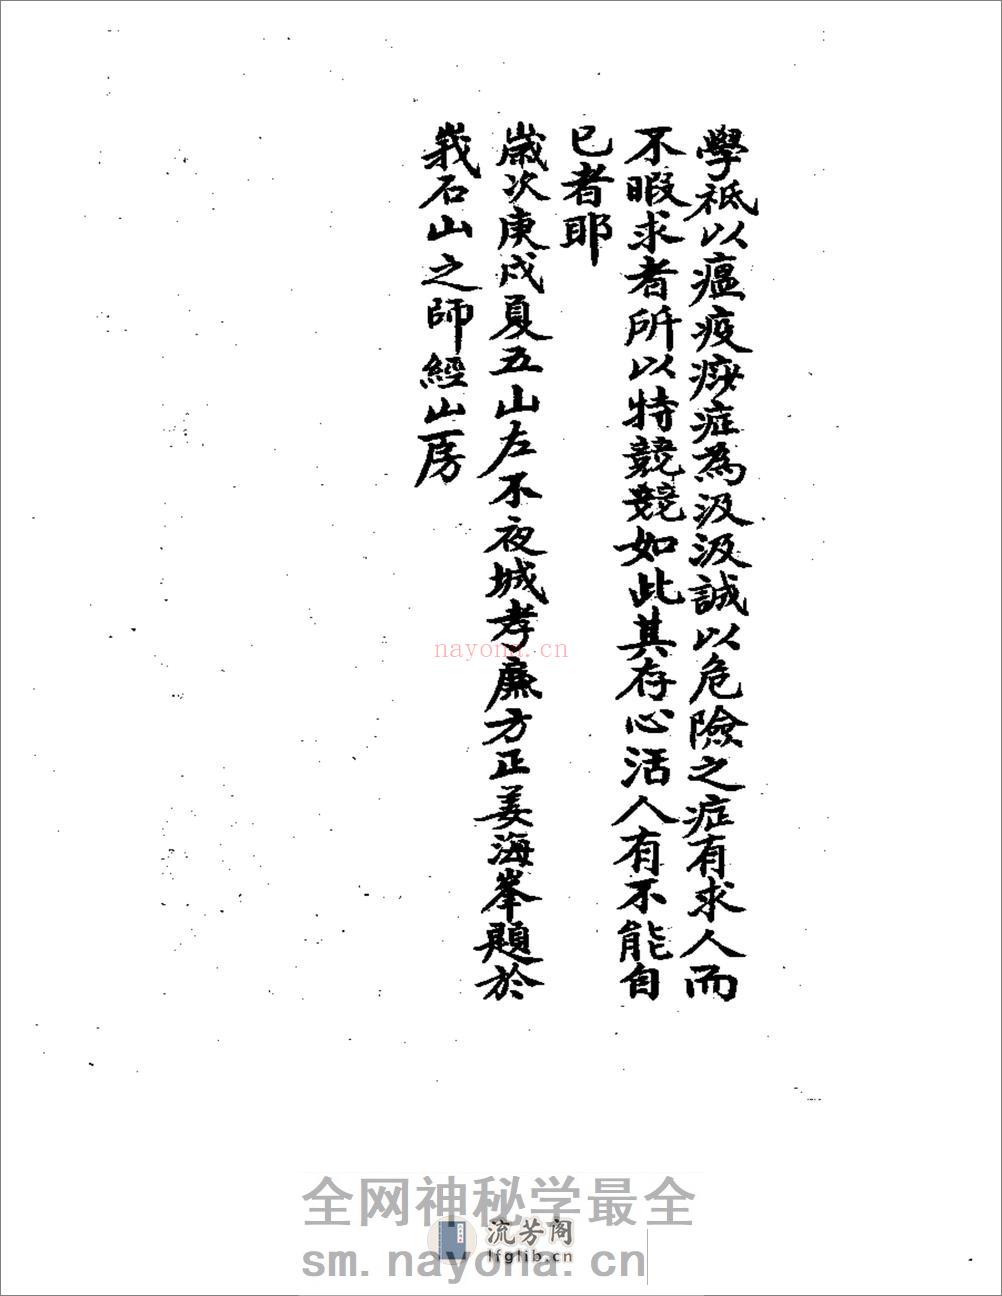 學祗以瘟疫痧症為汲汲誠以危險之症有求人而
不暇求者所以特競競如此其存心活人有不能自
已者耶
歲次庚戌夏五山左不夜城孝廉方正姜海峯題於
峩石山之師經山房
nayona.cn
全网神秘学最全
流芳阁
lfglib.cn
sm.nayona.cn